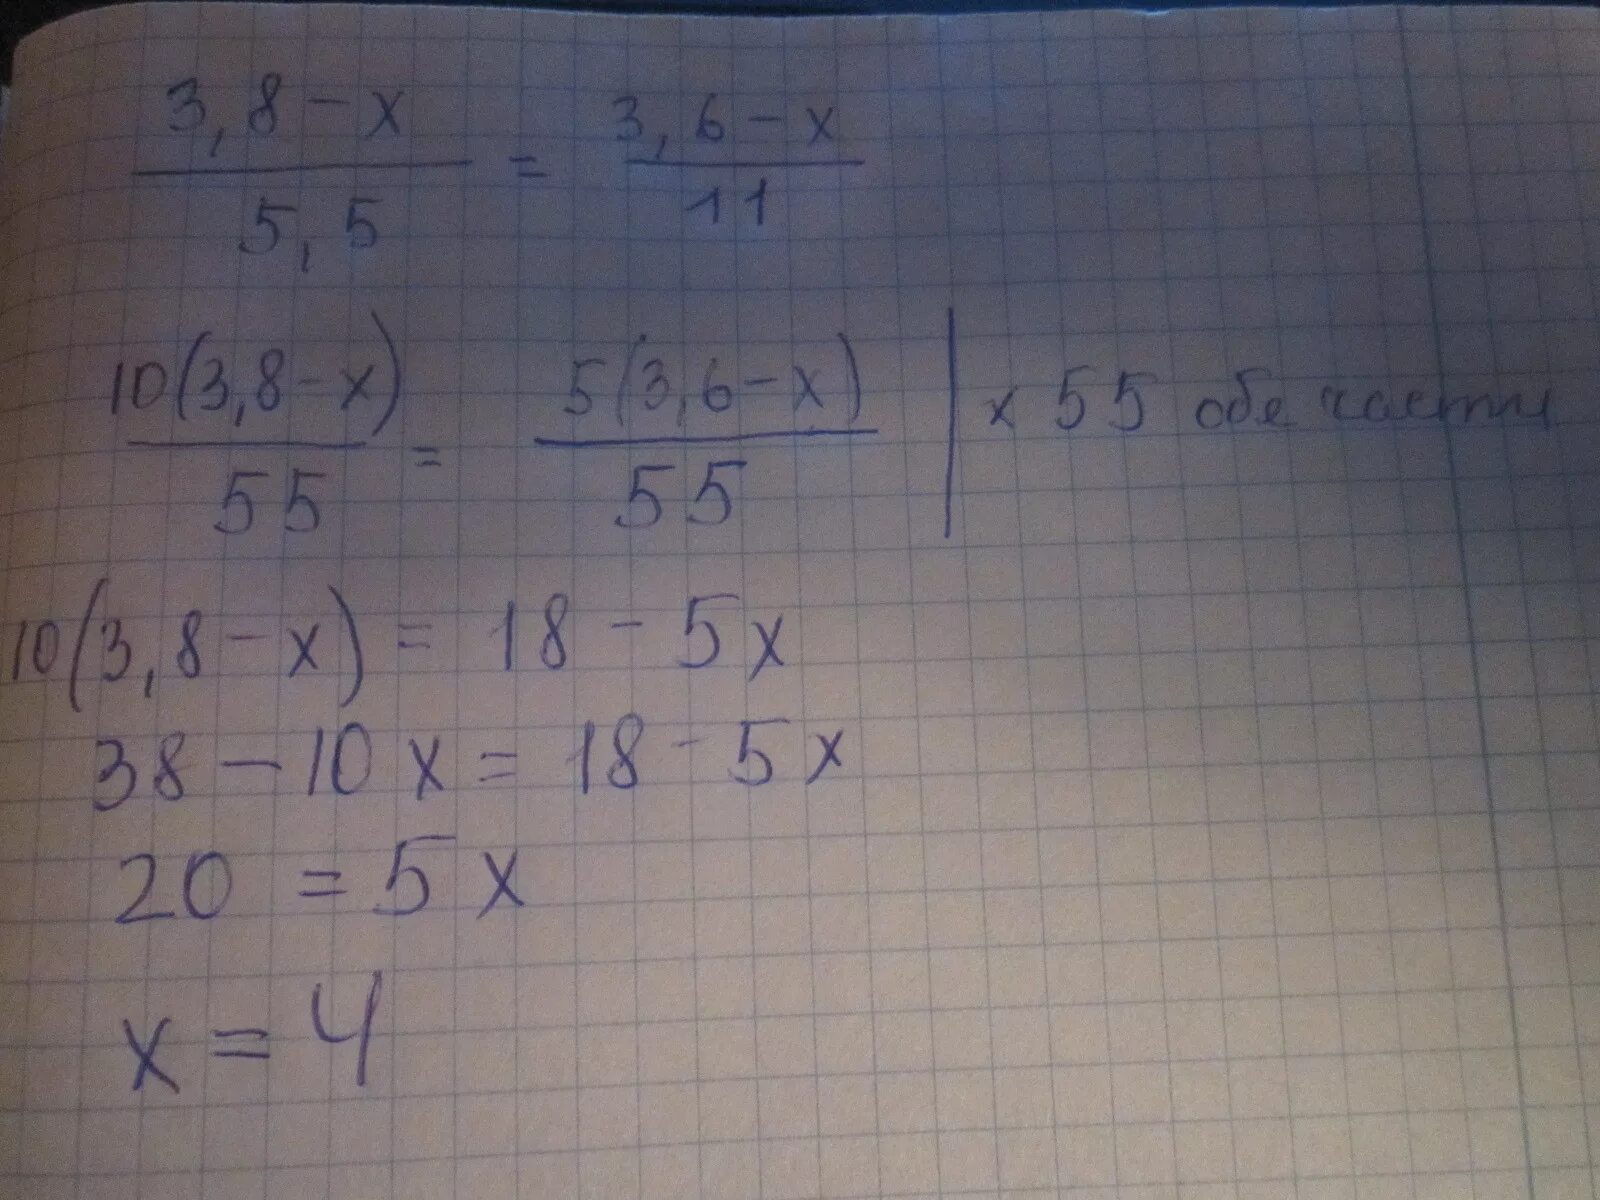 3,8 - x / 5,5 = 3,6 - x / 11
10(3,8 - x) / 55 = 5(3,6 - x) / 55 | x 55 обе части
10(3,8 - x) = 18 - 5x
38 - 10x = 18 - 5x
20 = 5x
x = 4